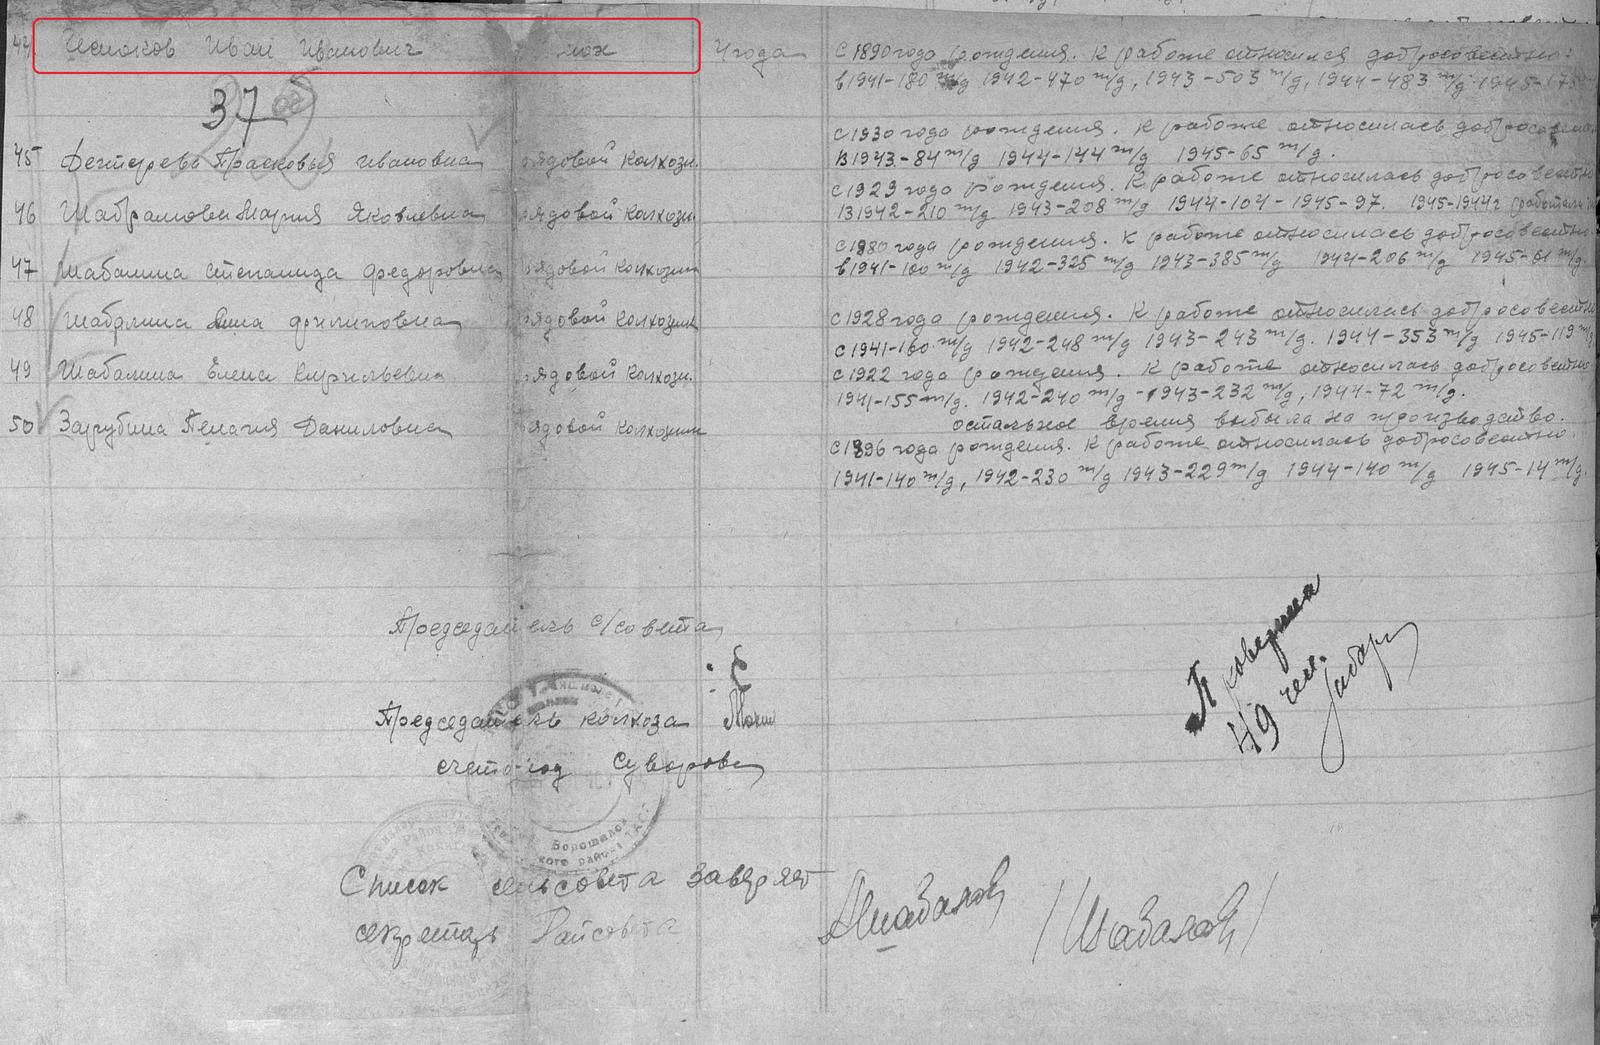 44 Чесноков Иван Иванович 4 года с 1890 года рождения. К работе относился добросовестно.
в 1941-180 т/д 1942-470 т/д, 1943-503 т/д, 1944-483 т/д 1945-175
37
с 1930 года рождения. К работе относилась добросовестно
45 Прасковья Ивановна рядовой колхозн. В 1943-84 т/д 1944-144 т/д 1945-65 т/д.
с 1929 года рождения. К работе относилась добросовестно
46 Мария Яковлевна рядовой колхозн. В 1942-210 т/д 1943-208 т/д 1944-104-1945-97. 1945-1944г работала
с 1880 года рождения. К работе относилась добросовестно
47 Шабалина Степанида Федоровна рядовой колхозник в 1941-100 т/д 1942-325 т/д 1943-385 т/д 1944-206 т/д 1945-61 т/д.
48 Шабалина Филиповна рядовой колхозник с 1928 года рождения. К работе относилась добросовестно
с 1941-160 т/д 1942-248 т/д 1943-243 т/д. 1944-353 т/д 1945-119 т/д
49 Шабалина Елена Кирильевна рядовой колхозн. с 1922 года рождения. К работе относилась добросовестно
1941-155 т/д. 1942-240 т/д-1943-232 т/д, 1944-72 т/д.
остальное время выбыла на производство.
50 Зарубина Пелагия Даниловна рядовой колхозник
с 1896 года рождения. К работе относилась добросовестно.
1941-140 т/д, 1942-230 т/д 1943-229 т/д 1944-140 т/д 1945-14 т/д.
Председатель с/совета
Председатель колхоза
счетовод Суворова
Проверила
49 чел.
Список сельсовета заверяет
секретарь Райсовета Шабалов /Шабалов/